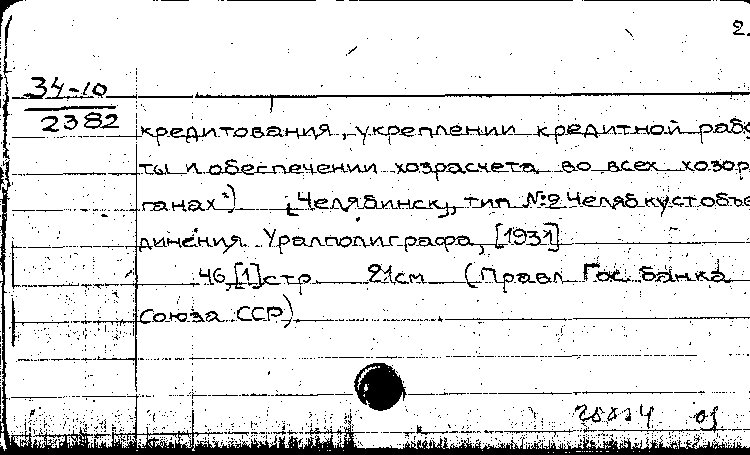 2.
34-10
2382
кредитования, укреплении кредитной рабо
ты и обеспечении хозрасчета во всех хозор
ганах") [Челябинск], тип №2 Челябкустобъе
динения Уралполиграфа, [1931]
46,[1]стр. 21см (Правл Гос. банка
Союза ССР).